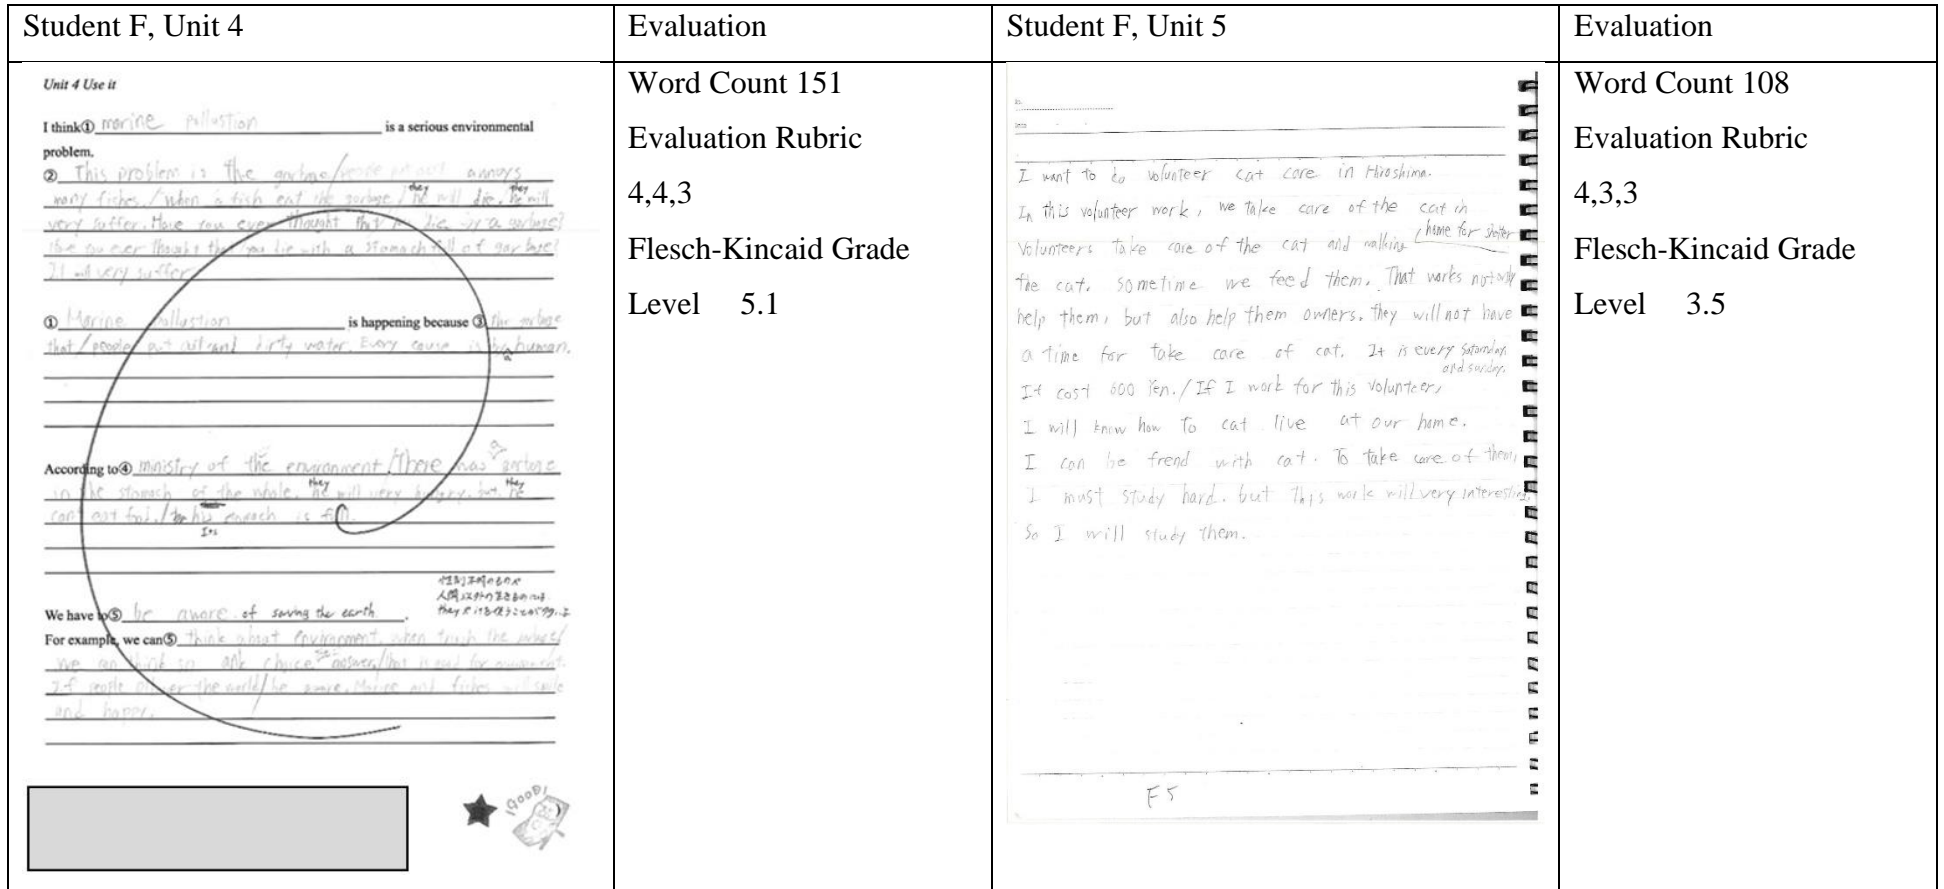 Student F, Unit 4
Evaluation
Student F, Unit 5
Evaluation
Unit 4 Use it
I think① marine pollustion is a serious environmental
problem.
② This problem is the garbage/people put out annoys
many fishes./When a fish eat the garbage/he they will die. he they will
very suffer. Have you ever thought that die by a garbage?
Have you ever thought that you die with a stomach full of garbage?
I will very suffer
① Marine pollustion is happening because ③ the garbage
that/people put out and dirty water. Every cause is human.
According to④ ministry of the environment./There was a garbage
in the stomach of the whale. he they will very hungry. but, he they
can't eat food./ his Its stomach is full.
We have to⑤ be aware of saving the earth.
For example, we can⑤ think about environment. when trash the
we can think so and choice answer/that is good for environment.
If people all over the world/be aware. Marine and fishes will smile
and happy.
GOOD!
Word Count 151
Evaluation Rubric
4,4,3
Flesch-Kincaid Grade
Level 5.1
I want to do volunteer cat care in Hiroshima.
In this volunteer work, we take care of the cat in
home for shelter
Volunteers take care of the cat and walking
the cat. Sometime we feed them. That works not only
help them, but also help them owners. they will not have
a time for take care of cat. It is every Saturday
and sunday.
It cost 600 Yen./If I work for this volunteer,
I will know how to cat live at our home.
I can be frend with cat. To take care of them,
I must study hard. but this work will very interesting.
So I will study them.
F5
Word Count 108
Evaluation Rubric
4,3,3
Flesch-Kincaid Grade
Level 3.5